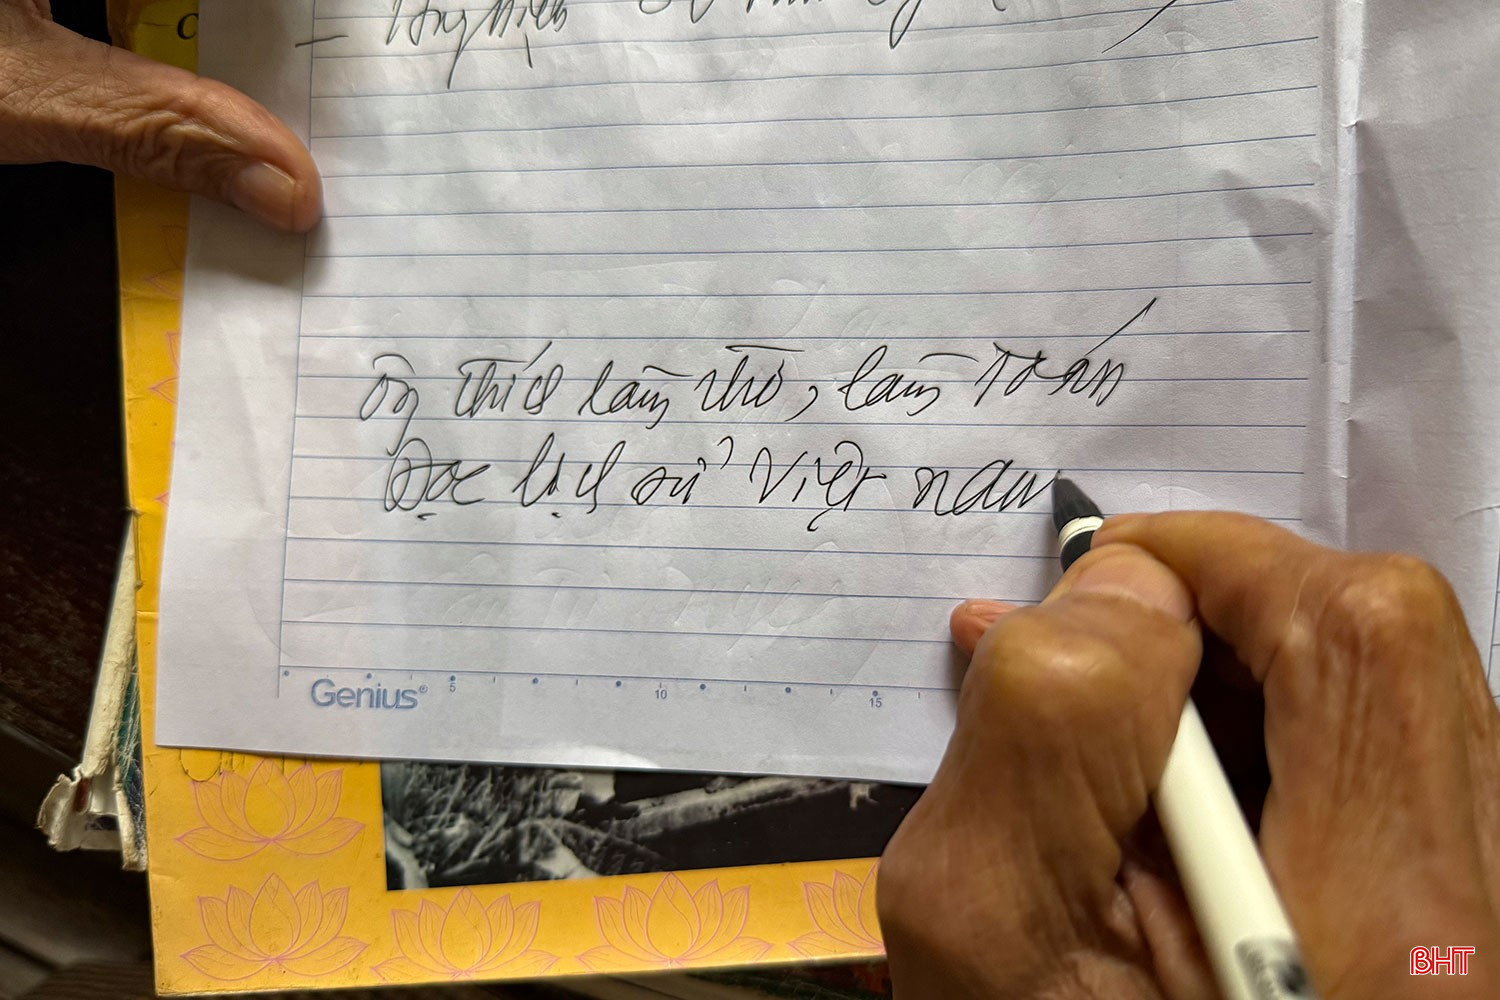 c
ông thích làm thơ, làm toán
Đọc lịch sử Việt nam
Genius®
5 10 15
BHT